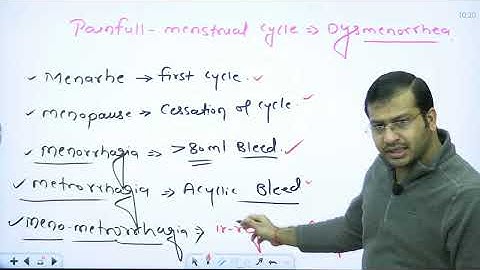 Painfull-menstrual cycle ⇒ Dysmenorrhea
10:20
✓ Menarhe → first cycle. ✓
✓ menopause ⇒ Cessation of cycle
✓ menorrhagia ⇒ >80ml Bleed. ✓
✓ metrorrhagia ⇒ Acyclic Bleed ✓
✓ Meno-metrorrhagia ⇒